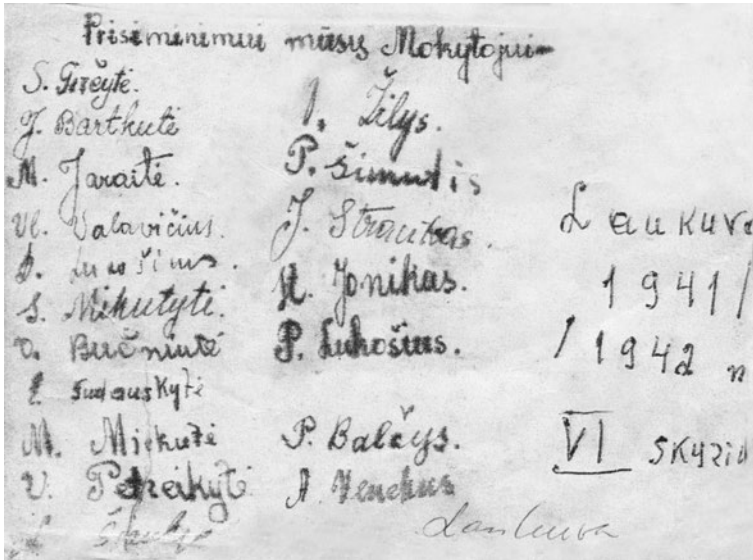 Prisiminimui mūsų Mokytojui
S. Girčytė.
J. Bartkutė
M. Jaraitė.
Vl. Valavičius.
S. Mikutytė.
O. Bučniutė
E
M. Mickutė
V. Petreikytė
I. Žilys.
P. Šimutis
J. Straukas.
K. Jonikas.
P. Lukošius.
P. Balčys.
A. Venckus
Laukuva
1941/
/1942 n
VI skyriu
Laukuva